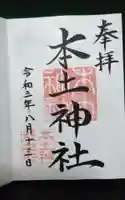 奉拝
本土神社
令和三年八月十三日